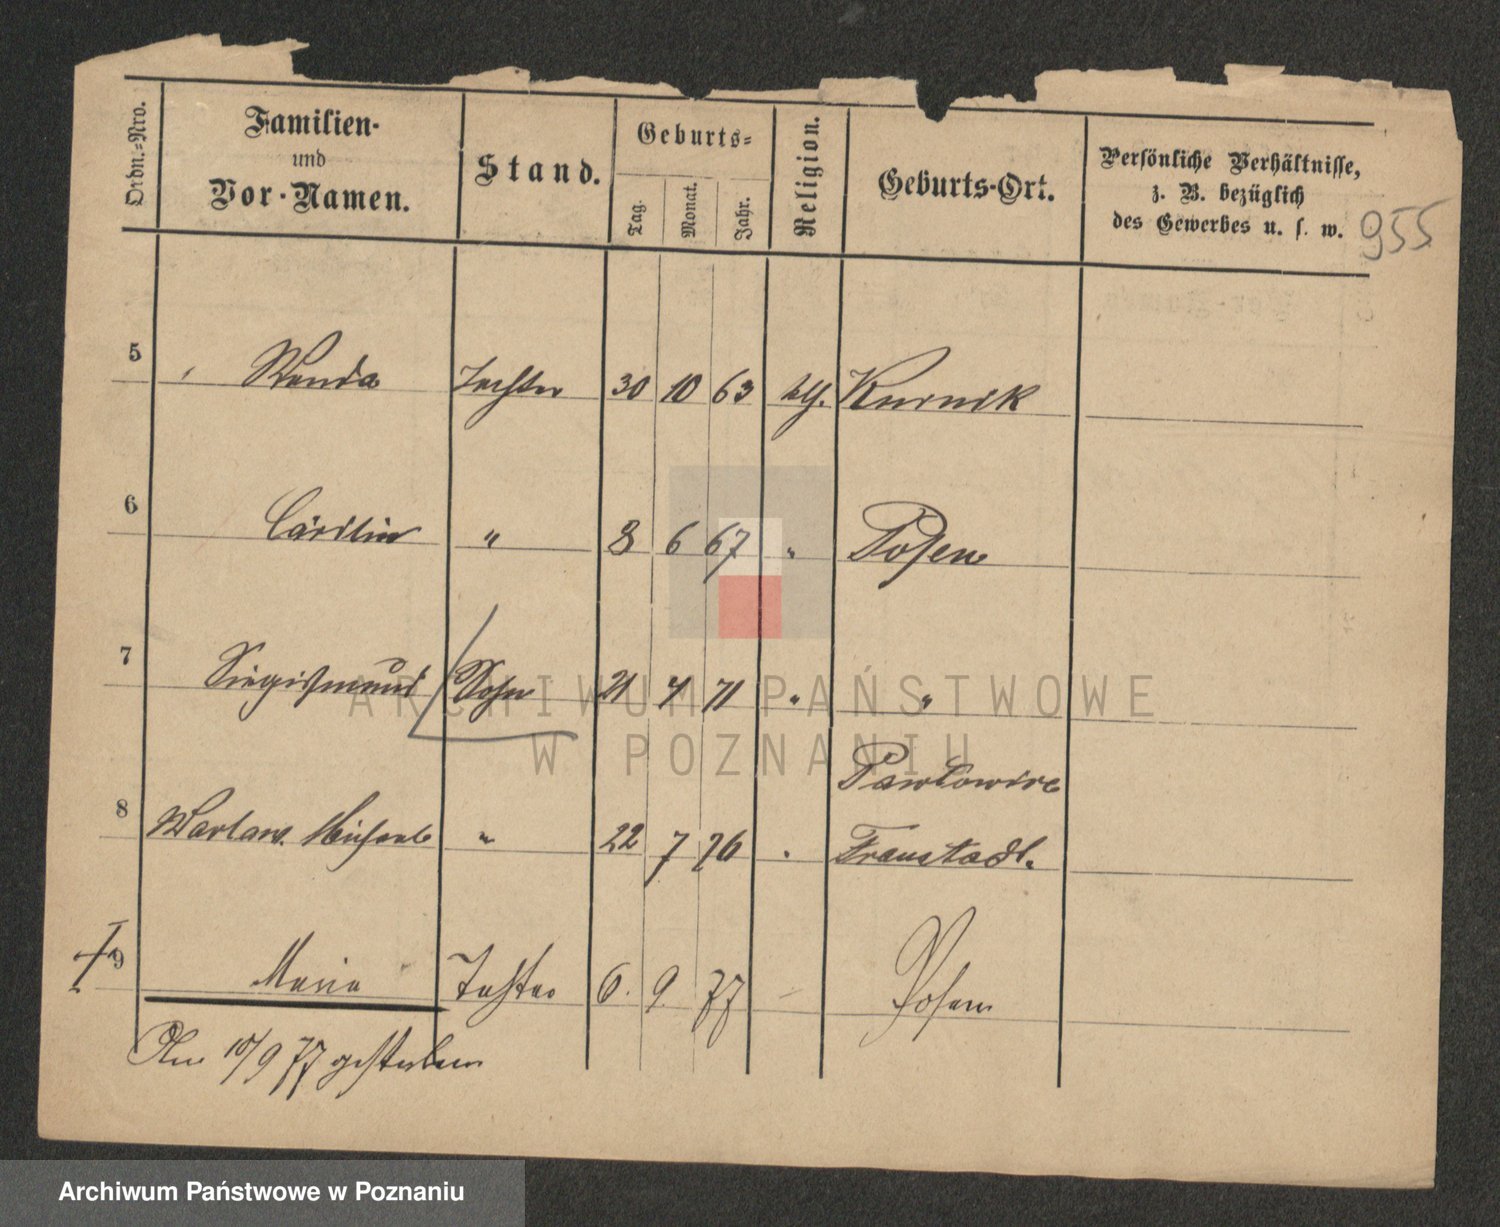 Ordn.=Nro.
Familien-
und
Vor-Namen.
Stand.
Geburts=
Tag.
Monat.
Jahr.
Religion.
Geburts-Ort.
Persönliche Verhältnisse,
z. B. bezüglich
des Gewerbes u. s. w.
955
5 Wanda Tochter 30 10 63 kth. Kurnik
6 " 8 6 67 " Posen
7 Siegismund Sohn 21 4 71 " "
Pawlowice
8 Waclaw Michael " 22 7 76 " Fraustadt.
9 Maria Tochter 6. 9. 77 Posen
Am 10/9 77 gestorben
ARCHIWUM PAŃSTWOWE
W POZNANIU
Archiwum Państwowe w Poznaniu